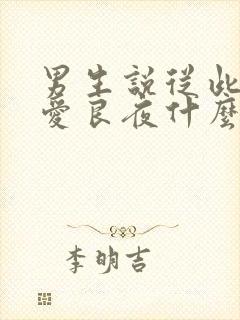 男生說從此
愛良夜什麼
李明吉